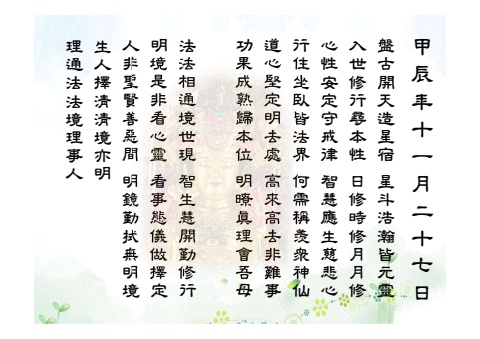 甲辰年十一月二十七日
盤古開天造星宿　星斗浩瀚皆元靈
入世修行尋本性　日修時修月月修
心性安定守戒律　智慧應生慈悲心
行住坐臥皆法界　何需稱羨眾神仙
道心堅定明去處　高來高去非難事
功果成熟歸本位　明瞭真理會吾母
法法相通境世現　智生慧開勤修行
明境是非看心靈　看事態儀做擇定
人非聖賢善惡間　明鏡勤拭無明境
生人擇清清境亦明
理通法法境理事人